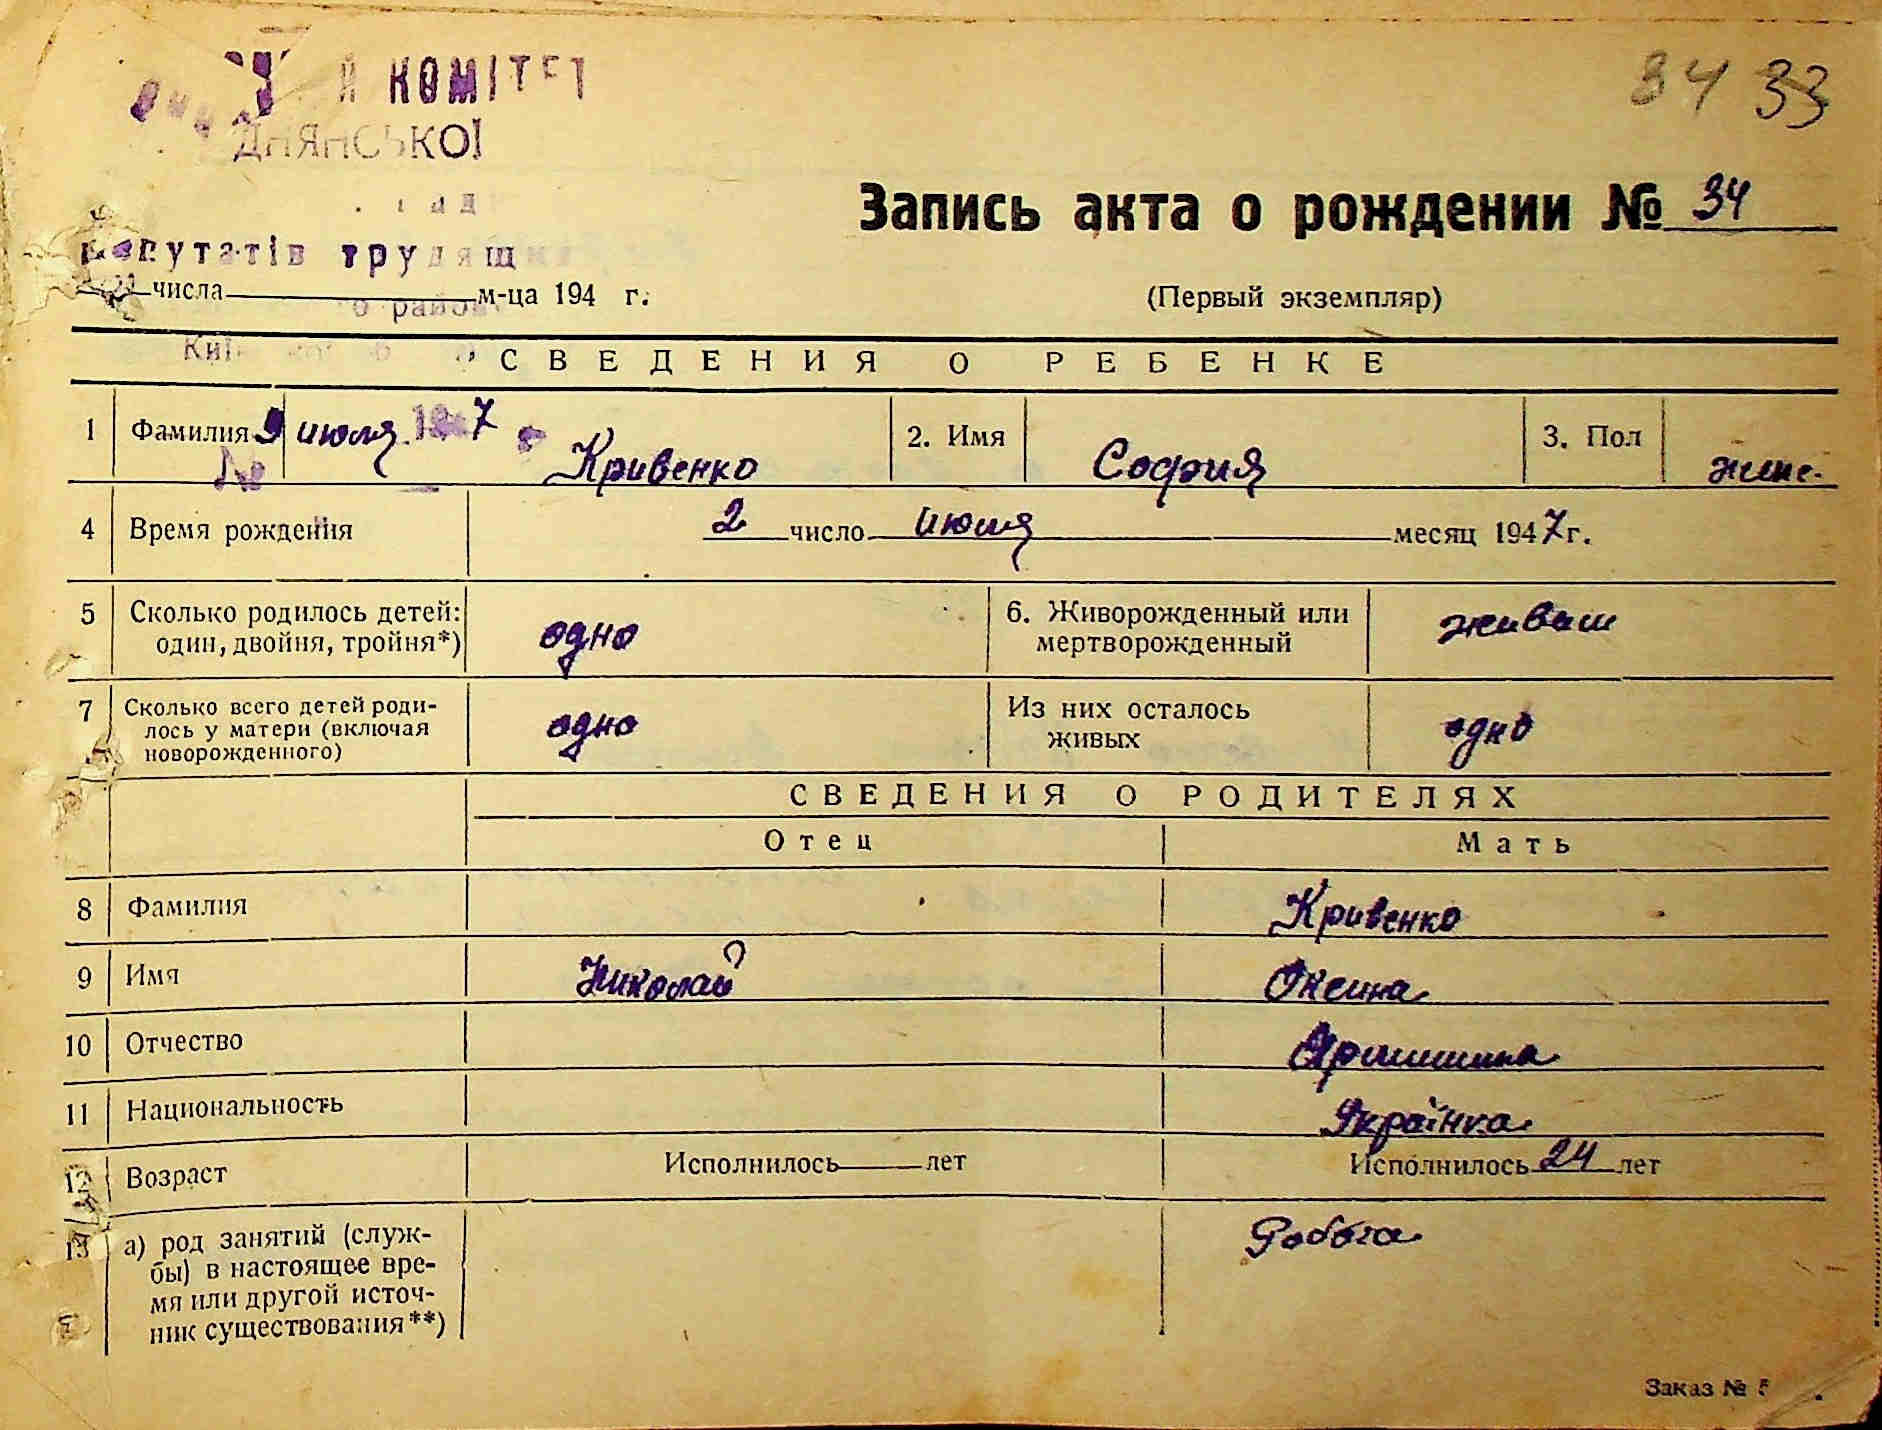 34 33
КОМІТЕТ
ДНЯНСЬКОЇ
Депутатів трудящих
Запись акта о рождении № 34
числа м-ца 194 г.
(Первый экземпляр)
о району
СВЕДЕНИЯ О РЕБЕНКЕ
1 Фамилия 9 июля 1947 Кривенко 2. Имя София 3. Пол жине.
№
4 Время рождения 2 число июля месяц 1947 г.
5 Сколько родилось детей: один, двойня, тройня*) одно 6. Живорожденный или мертворожденный живаш
7 Сколько всего детей родилось у матери (включая новорожденного) одно Из них осталось живых одно
СВЕДЕНИЯ О РОДИТЕЛЯХ
Отец Мать
8 Фамилия Кривенко
9 Имя Николай Оксина
10 Отчество
11 Национальность Українка
12 Возраст Исполнилось лет Исполнилось 24 лет
13 а) род занятий (службы) в настоящее время или другой источник существования**) Робота
Заказ № 5